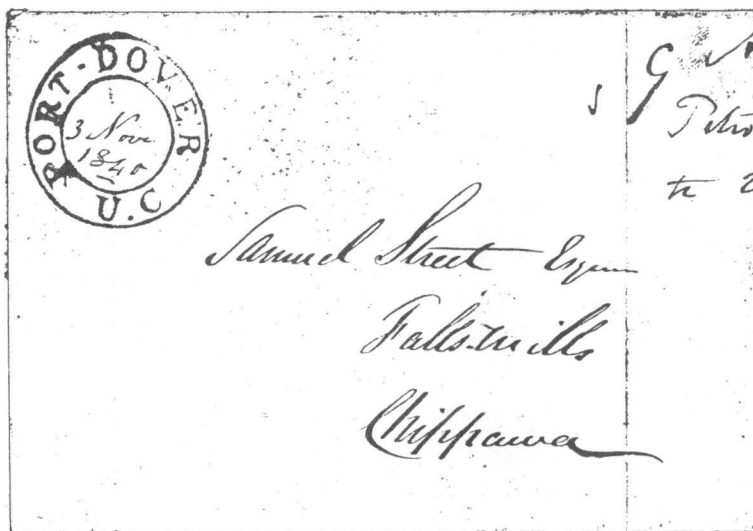 PORT-DOVER
3 Nov
1840
U.C
Samuel Street Esqr
Falls Mills
Chippawa